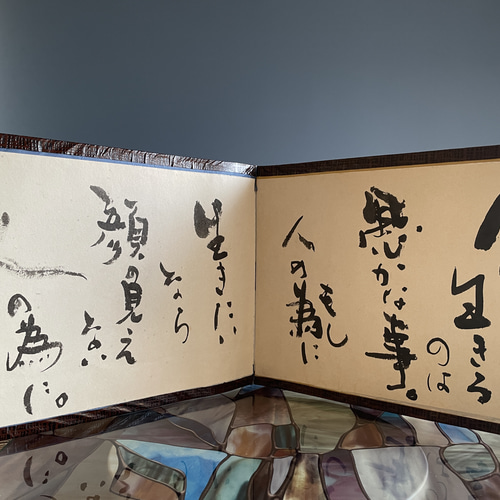 生きる
のは
愚かな事。
もし
人の為に
生きたい
なら
顔の見え
の為に。